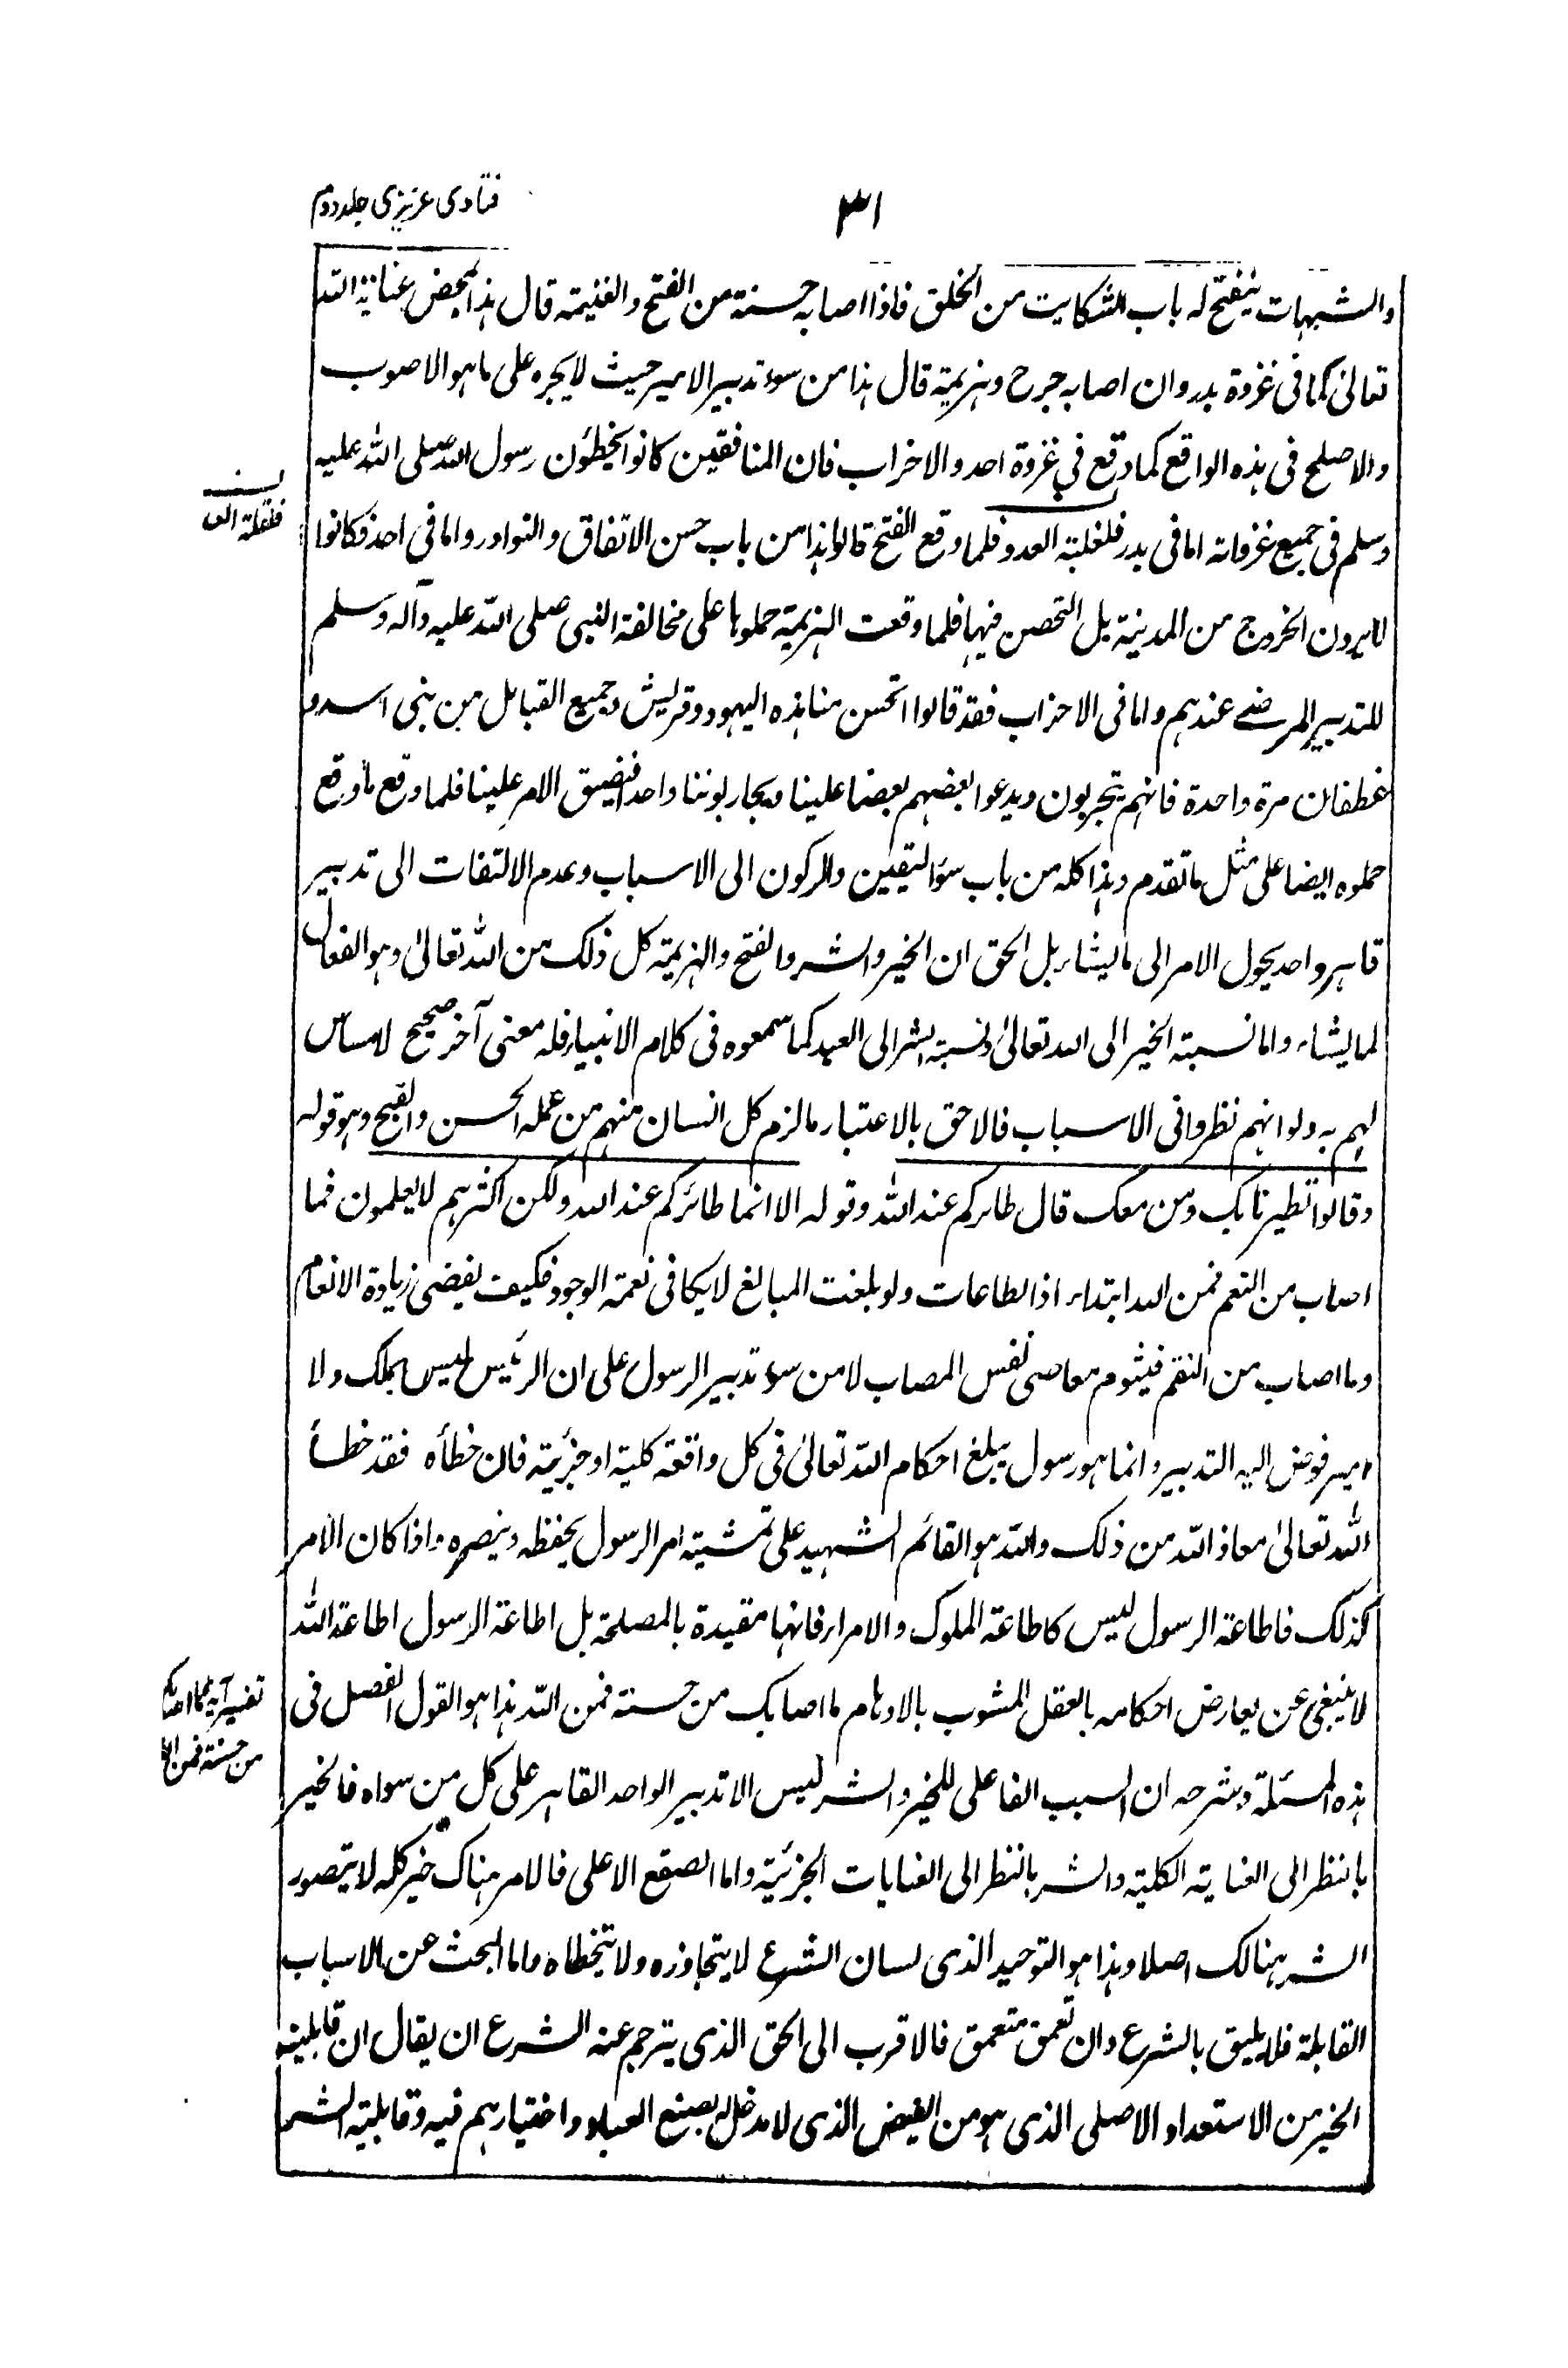 فتاوی عزیزی جلد دوم
۳۱
والشبہات ینفتح له باب الشکایت من الخلق فاذا اصابه حسنة من الفتح والغنیمة قال ہذا لمحض عنایة الله
تعالیٰ کما فی غزوة بدر وان اصابه جرح وہزیمة قال ہذا من سوء تدبیر الامیر حیث لا یجره علی ما ہو الاصوب
والاصلح فی ہذه الواقع کما وقع فی غزوة احد والاحزاب فان المنافقین کانوا یخطئون رسول الله صلی الله علیه
وسلم فی جمیع غزواته اما فی بدر فلغلبة العدو فلما وقع الفتح قالوا ہذا من باب حسن الاتفاق والنوادر واما فی احد فکانوا
فلقلة العد
لا یرون الخروج من المدینة بل التحصن فیہا فلما وقعت الہزیمة حملوہا علی مخالفة النبی صلی الله علیه وآله وسلم
للتدبیر المرضے عندہم واما فی الاحزاب فقد قالوا اتحسن منابذه الیہود وقریش وجمیع القبائل من بنی اسد و
غطفان مرة واحدة فانہم یتحربون ویدعوا بعضہم بعضا علینا ویحاربوننا واحدا فیضیق الامر علینا فلما وقع ما وقع
حملوه ایضا علی مثل ما تقدم وہذا کله من باب سوء الیقین والرکون الی الاسباب وعدم الالتفات الی تدبیر
قاہر واحد یحول الامر الی ما یشاء بل الحق ان الخیر والشر والفتح والہزیمة کل ذلک من الله تعالیٰ وہو الفعال
لما یشاء واما نسبة الخیر الی الله تعالیٰ ونسبة الشر الی العبد کما سمعوه فی کلام الانبیاء فله معنی آخر صحیح لا مساس
لہم به ولو انہم نظروا فی الاسباب فالاحق بالاعتبار ما لزم کل انسان منہم من عمله الحسن والقبیح وہو قوله
وقالوا تطیرنا بک ومن معک قال طائرکم عند الله وقوله الا انما طائرکم عند الله ولکن اکثرہم لا یعلمون فما
اصاب من النعم فمن الله ابتداء اذا لطاعات ولو بلغت المبالغ لا یکافی نعمة الوجود فکیف یفضی زیادة الانعام
وما اصاب من النقم فبشوم معاصی نفس المصاب لا من سوء تدبیر الرسول علی ان الرئیس لیس بملک ولا
امیر فوض الیه التدبیر وانما ہو رسول یبلغ احکام الله تعالیٰ فی کل واقعة کلیة او جزئیة فان خطأه فقد خطأ
الله تعالیٰ معاذ الله من ذلک والله ہو القائم الشہید علی تمشیة امر الرسول یحفظه وینصره واذا کان الامر
کذلک فاطاعة الرسول لیس کاطاعة الملوک والامراء فانہا مقیدة بالمصلحة بل اطاعة الرسول اطاعة الله
لا ینبغی عن یعارض احکامه بالعقل المشوب بالاوہام ما اصابک من حسنة فمن الله ہذا ہو القول الفصل فی
تفسیر آیة ما اصابک
من حسنة فمن الله
ہذه المسئلة وشرحه ان السبب الفاعلی للخیر والشر لیس الا تدبیر الواحد القاہر علی کل من سواه فالخیر
بالنظر الی العنایة الکلیة والشر بالنظر الی العنایات الجزئیة واما الصقع الاعلی فالامر ہناک خیر کله لا یتصور
الشر ہنالک اصلا وہذا ہو التوحید الذی لسان الشرع لا یتجاوزه ولا یتخطاه واما البحث عن الاسباب
القابلة فلا یلیق بالشرع وان تعمق متعمق فالاقرب الی الحق الذی یترجم عنه الشرع ان یقال ان قابلیة
الخیر من الاستعداد الاصلی الذی ہو من الفیض الذی لا مدخل له بصنع العباد واختیارہم فیه وقابلیة الشر